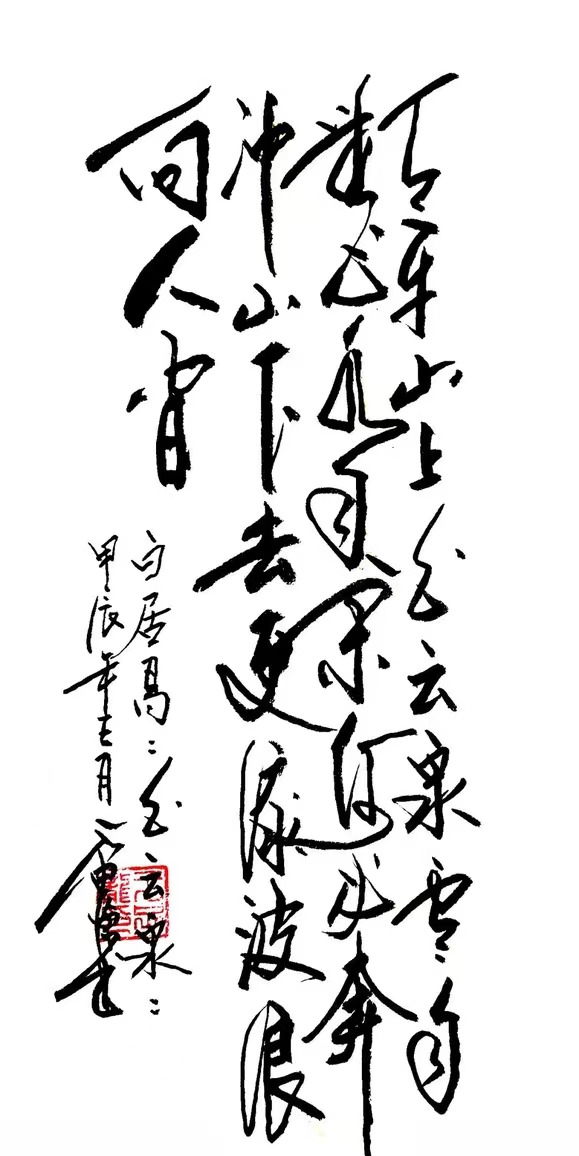 天平山上白云泉雲自
無心水自闲何必奔
冲山下去更添波浪
向人间
白居易白云泉
甲辰年月